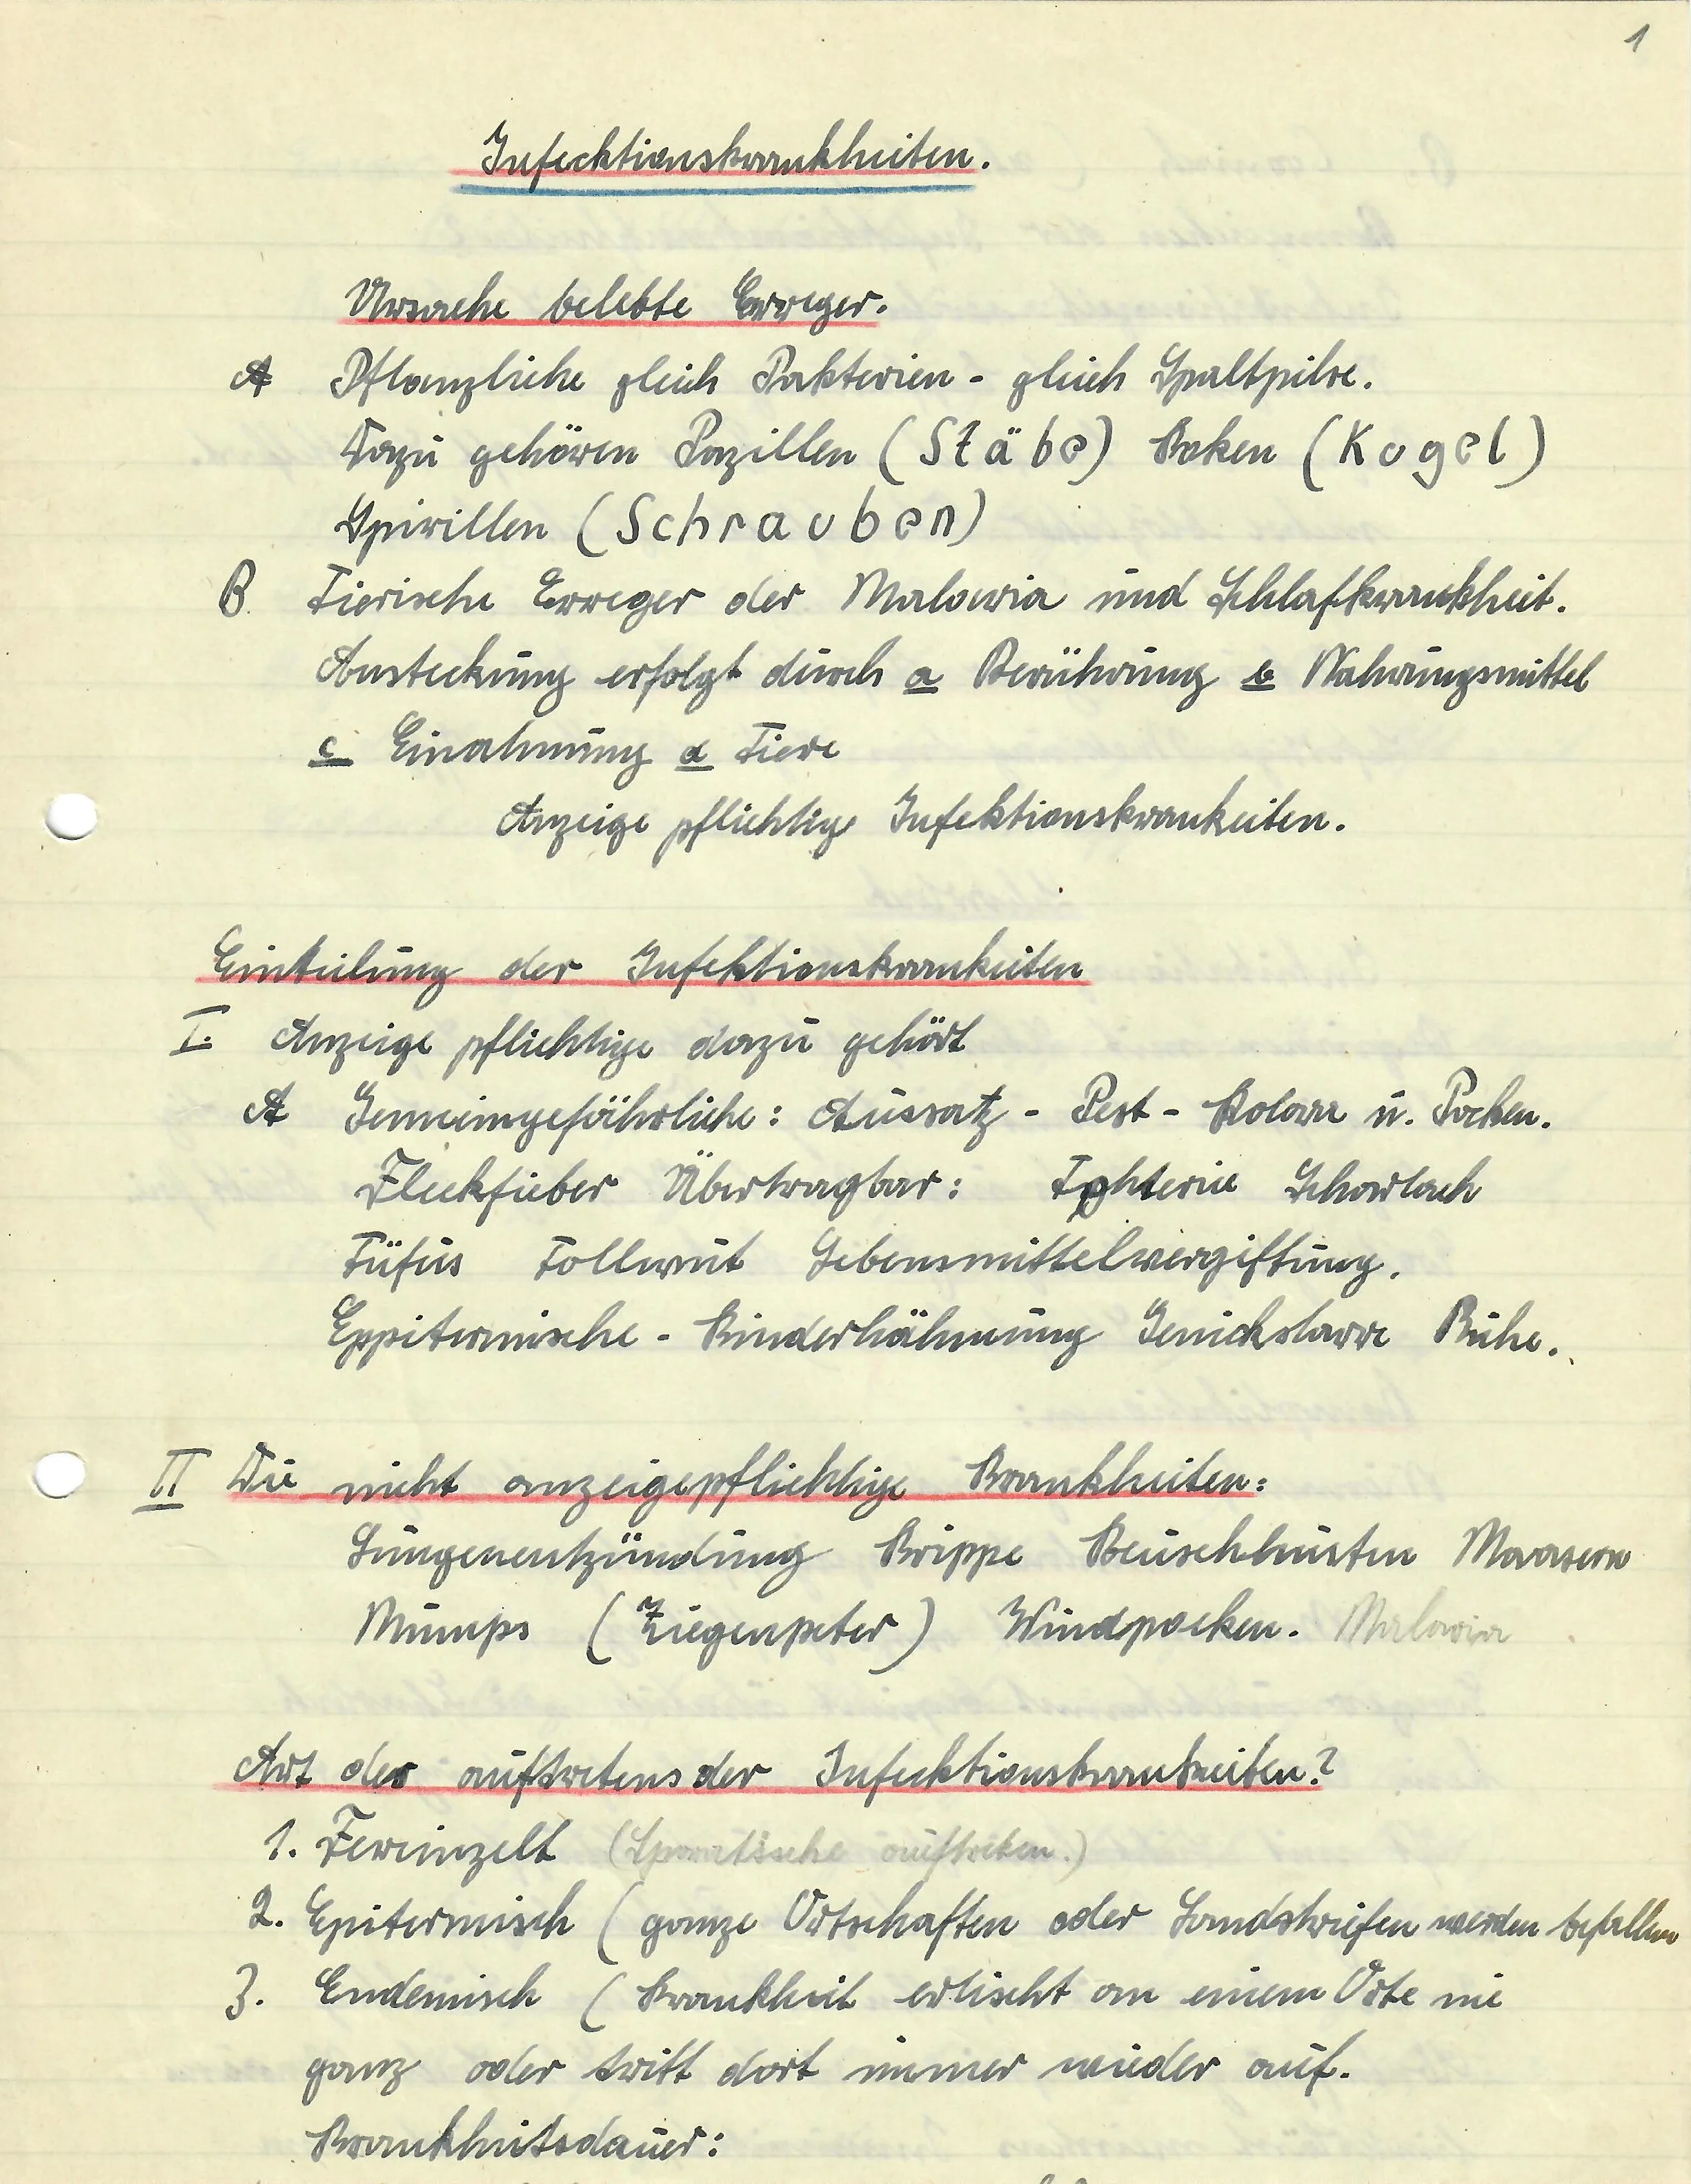 1
Infecktionskrankheiten.
Ursache belebte Erreger.
A Pflanzliche gleich Pakterien - gleich Spaltpilze.
Dazu gehören Pazillen (Stäbe) Koken (Kugel)
Spirillen (Schrauben)
B. Tierische Erreger der Malaria und Schlafkrankheit.
Ansteckung erfolgt durch a Berührung b Nahrungsmittel
c Einahmung d Tiere
Anzeige pflichtige Infektionskrankeiten.
Einteilung der Infektionskrankeiten
I. Anzeige pflichtige dazu gehört
A Gemeingefährliche: Aussatz - Pest - Kolara u. Pocken.
Fleckfieber Übertragbar: Scharlach
Tüfus Tollwut Lebensmittelvergiftung.
Eppitemische - Kinderlähmung Genickstarre Ruhe.
II Die nicht anzeigepflichtige Krankheiten:
Lungenentzündung Krippe Keuschhusten Maasern
Mumps (Ziegenpeter) Windpocken. Malaria
Art des auftretens der Infecktionskrankeiten?
1. Fereinzelt (Sporatische auftreten.)
2. Epitemisch (ganze Ortschaften oder Landstriefen werden befallen
3. Endemisch (Krankheit erlischt an einem Orte nie
ganz oder tritt dort immer wieder auf.
Krankheitsdauer: